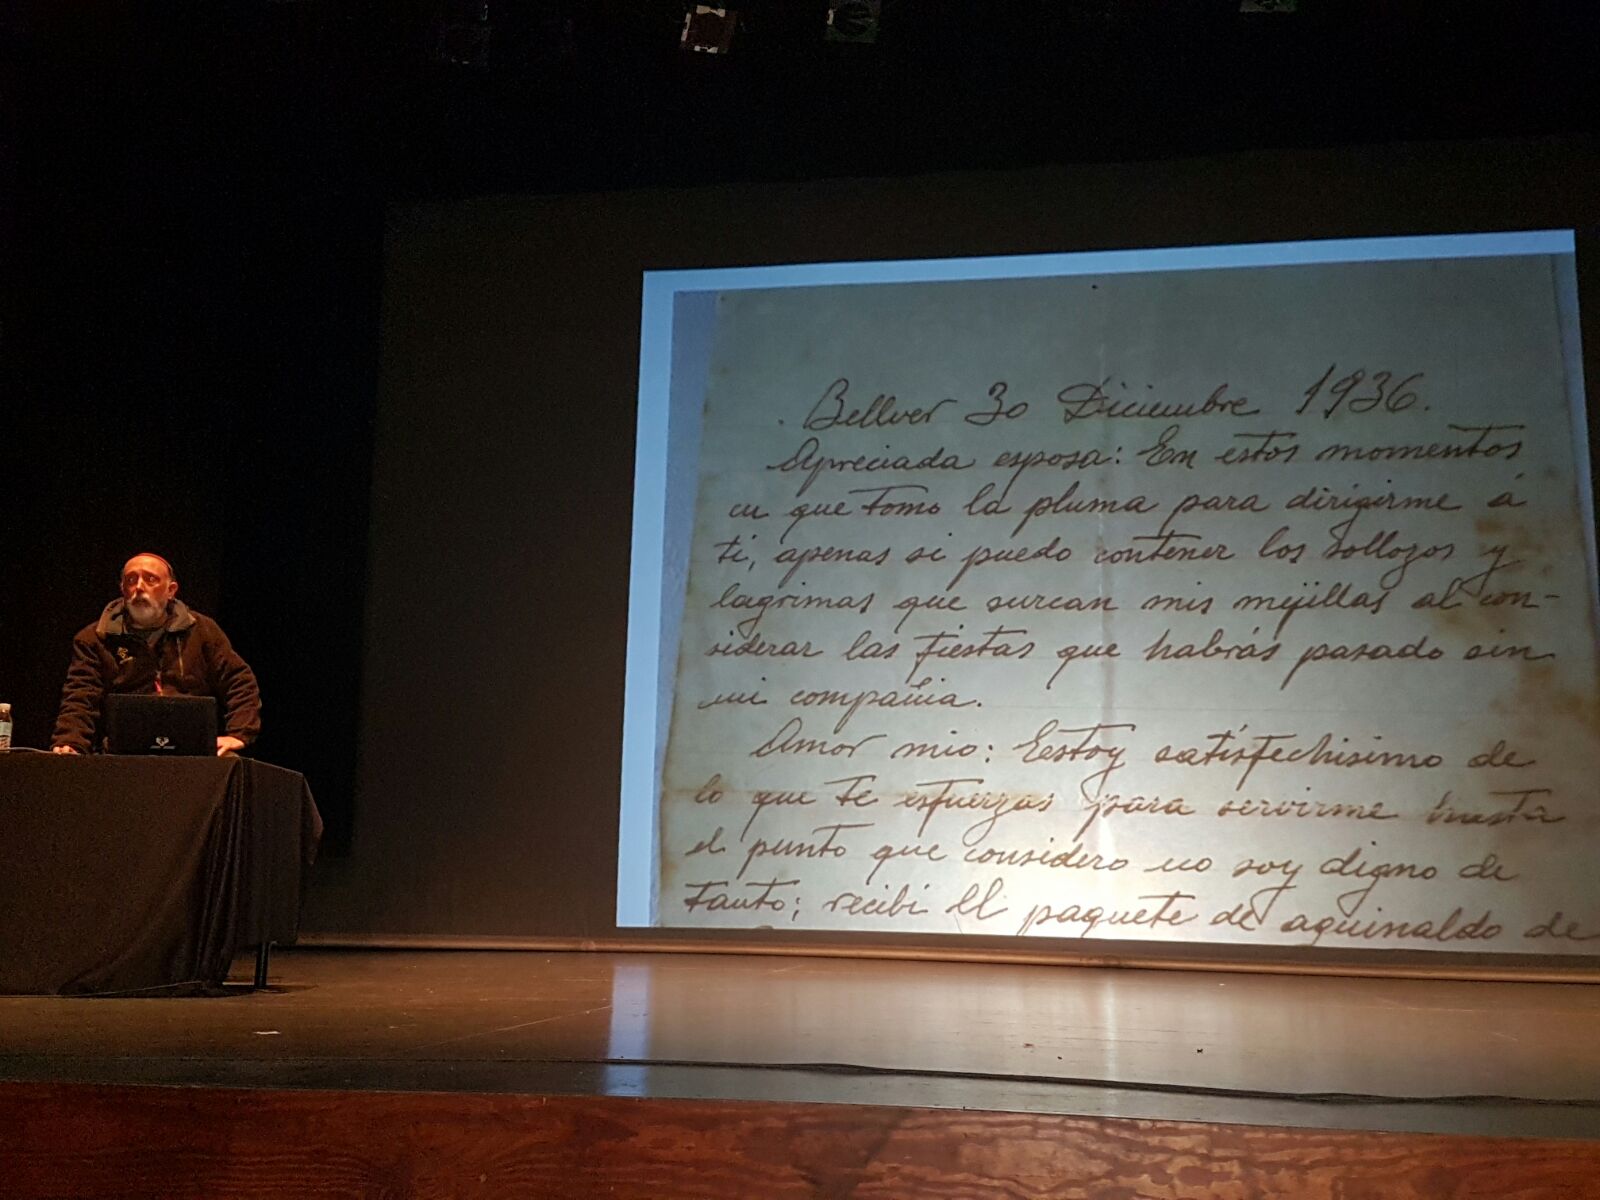 Bellver 30 Diciembre 1936.
Apreciada esposa: En estos momentos
en que tomo la pluma para dirigirme á
ti, apenas si puedo contener los sollozos y
lagrimas que surcan mis mejillas al con-
siderar las fiestas que habrás pasado sin
mi compañia.
Amor mio: Estoy satisfechisimo de
lo que te esfuerzas para servirme hasta
el punto que considero no soy digno de
tanto; recibi el paquete de aguinaldo de